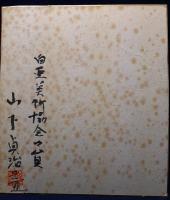 白亜美術協会々員
山下貞治